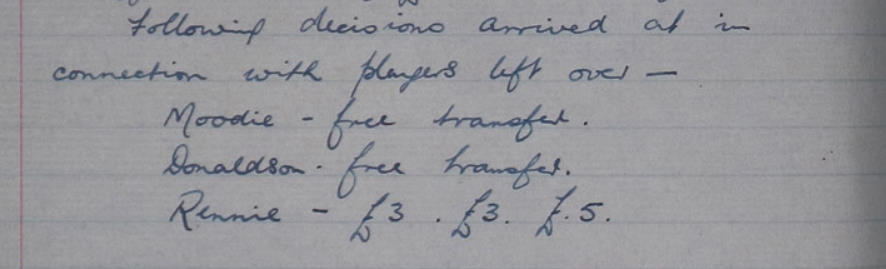 Following decisions arrived at in
connection with players left over —
Moodie - free transfer.
Donaldson - free transfer.
Rennie - £3 . £3. £.5.